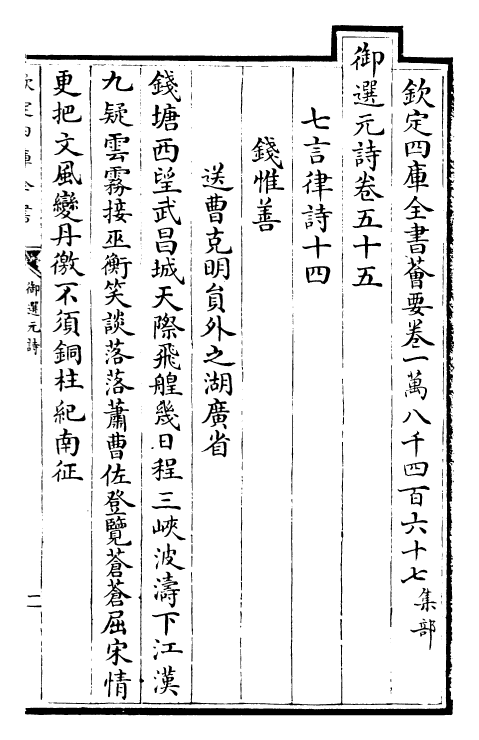 欽定四庫全書薈要卷一萬八千四百六十七集部
御選元詩卷五十五
七言律詩十四
錢惟善
送曹克明貟外之湖廣省
錢塘西望武昌城天際飛艎幾日程三峽波濤下江漢
九疑雲霧接巫衡笑談落落蕭曹佐登覽蒼蒼屈宋情
更把文風變丹徼不須銅柱紀南征
欽定四庫全書
御選元詩